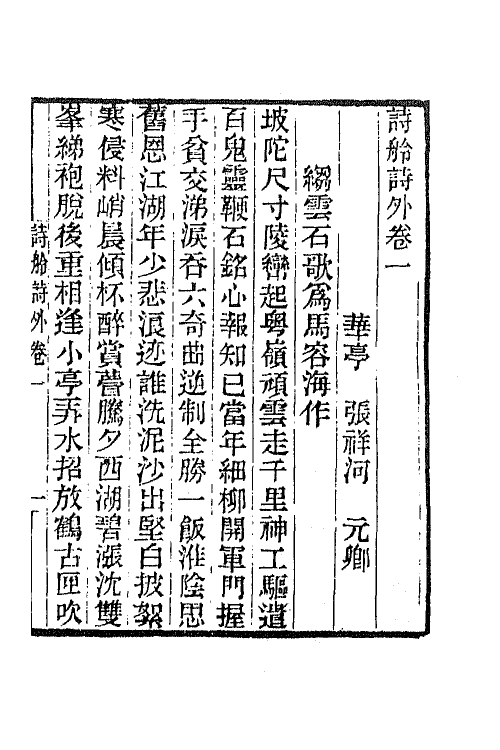 詩舲詩外卷一
華亭　張祥河　元卿
縐雲石歌爲馬容海作
坡陀尺寸陵巒起粤嶺頑雲走千里神工驅遣
百鬼靈鞭石銘心報知已當年細柳開軍門握
手貧交涕淚吞六奇曲逆制全勝一飯淮陰思
舊恩江湖年少悲浪迹誰洗泥沙出堅白披絮
寒侵料峭晨傾杯醉賞瞢騰夕西湖碧漲沈雙
峯綈袍脫後重相逢小亭弄水招放鶴古匣吹
詩舲詩外卷一　一